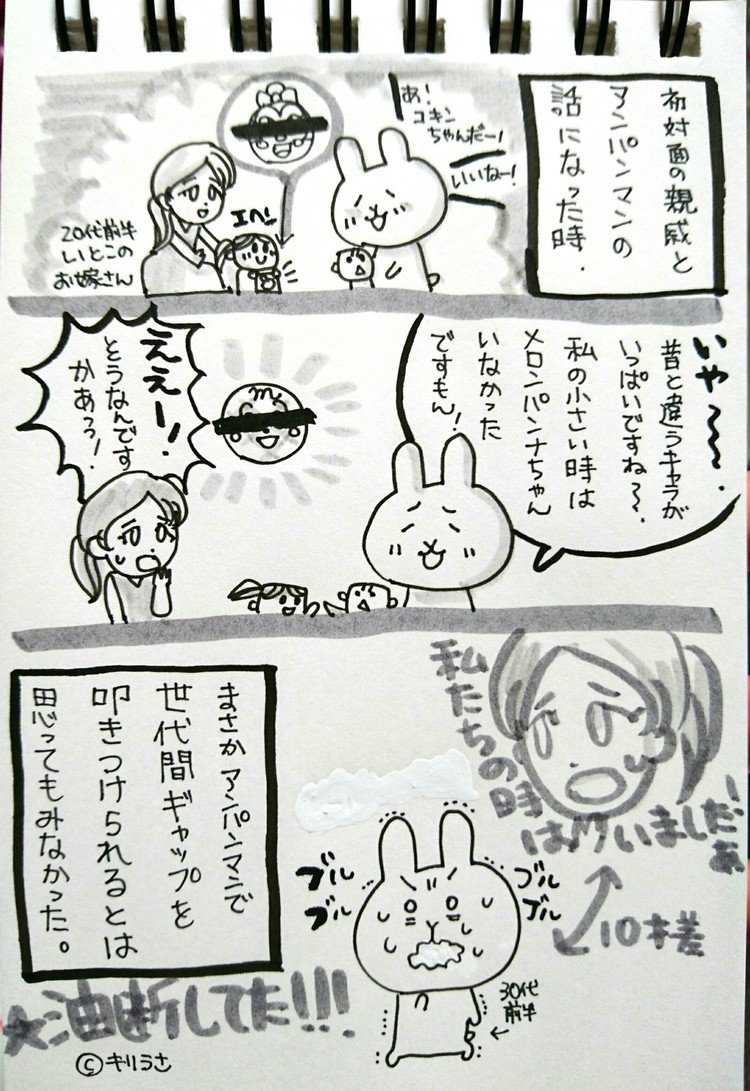 初対面の親戚と
アンパンマンの
話になった時.
あ!
コキン
ちゃんだー!
いいなー!
エヘン
20代前半
いとこの
お嫁さん
いや〜〜.
昔と違うキャラが
いっぱいですね〜.
私の小さい時は
メロンパンナちゃん
いなかった
ですもん!
ええー!
そうなんです
かあっ!
私たちの時
はいましたよ!
まさかアンパンマンで
世代間ギャップを
叩きつけられるとは
思ってもみなかった。
ブル
ブル
ブル
ブル
10才差
30代
前半
油断してた!!!
©キリうさ